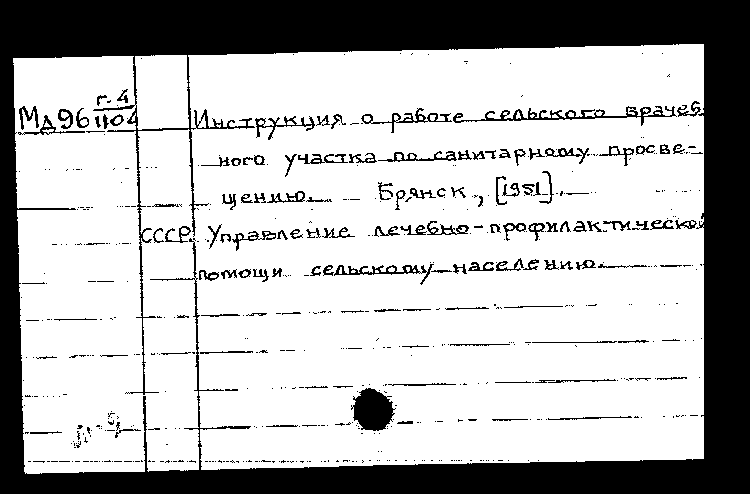 г. 4
Мд96 1104 Инструкция о работе сельского врачеб
ного участка по санитарному просве-
щению. Брянск, [1951].
СССР. Управление лечебно-профилактической
помощи сельскому населению.